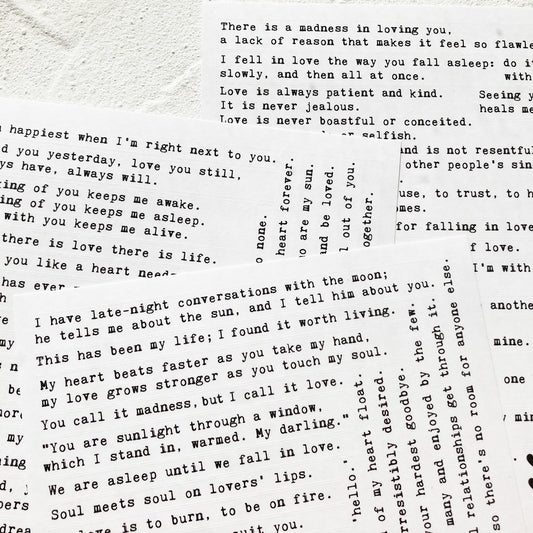 There is a madness in loving you,
a lack of reason that makes it feel so flawle
I fell in love the way you fall asleep:
slowly, and then all at once.
do i
with
Love is always patient and kind.
It is never jealous.
Love is never boastful or conceited.
or selfish.
Seeing y
heals me
and is not resentful
other people's sin
use, to trust, to h
omes.
for falling in love
f love.
I'm with
anothe
mine.
one
y min
happiest when I'm right next to you.
d you yesterday, love you still,
ys have, always will.
king of you keeps me awake.
ing of you keeps me asleep.
with you keeps me alive.
there is love there is life.
you like a heart needs
has ever
none.
heart forever.
o are my sun.
and be loved.
l out of you.
ogether.
my
s n
be
more
my
ning
d,
pers
drea
I have late-night conversations with the moon;
he tells me about the sun, and I tell him about you.
This has been my life; I found it worth living.
My heart beats faster as you take my hand,
my love grows stronger as you touch my soul.
You call it madness, but I call it love.
"You are sunlight through a window,
which I stand in, warmed. My darling."
We are asleep until we fall in love.
Soul meets soul on lovers' lips.
love is to burn, to be on fire.
suit you.
'hello.'
of my heart float.
rresistibly desired.
your hardest goodbye.
many and enjoyed by the few.
l relationships get through it.
so there's no room for anyone else.